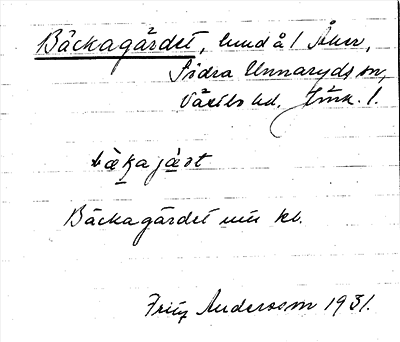 Bäckagärdet, lund å l Åker,
Södra Unnaryds sn,
Västbo hd, Jönk. l.
bækajæṣt
Bäckagärdet uiu kb.
Fritz Andersson 1931.